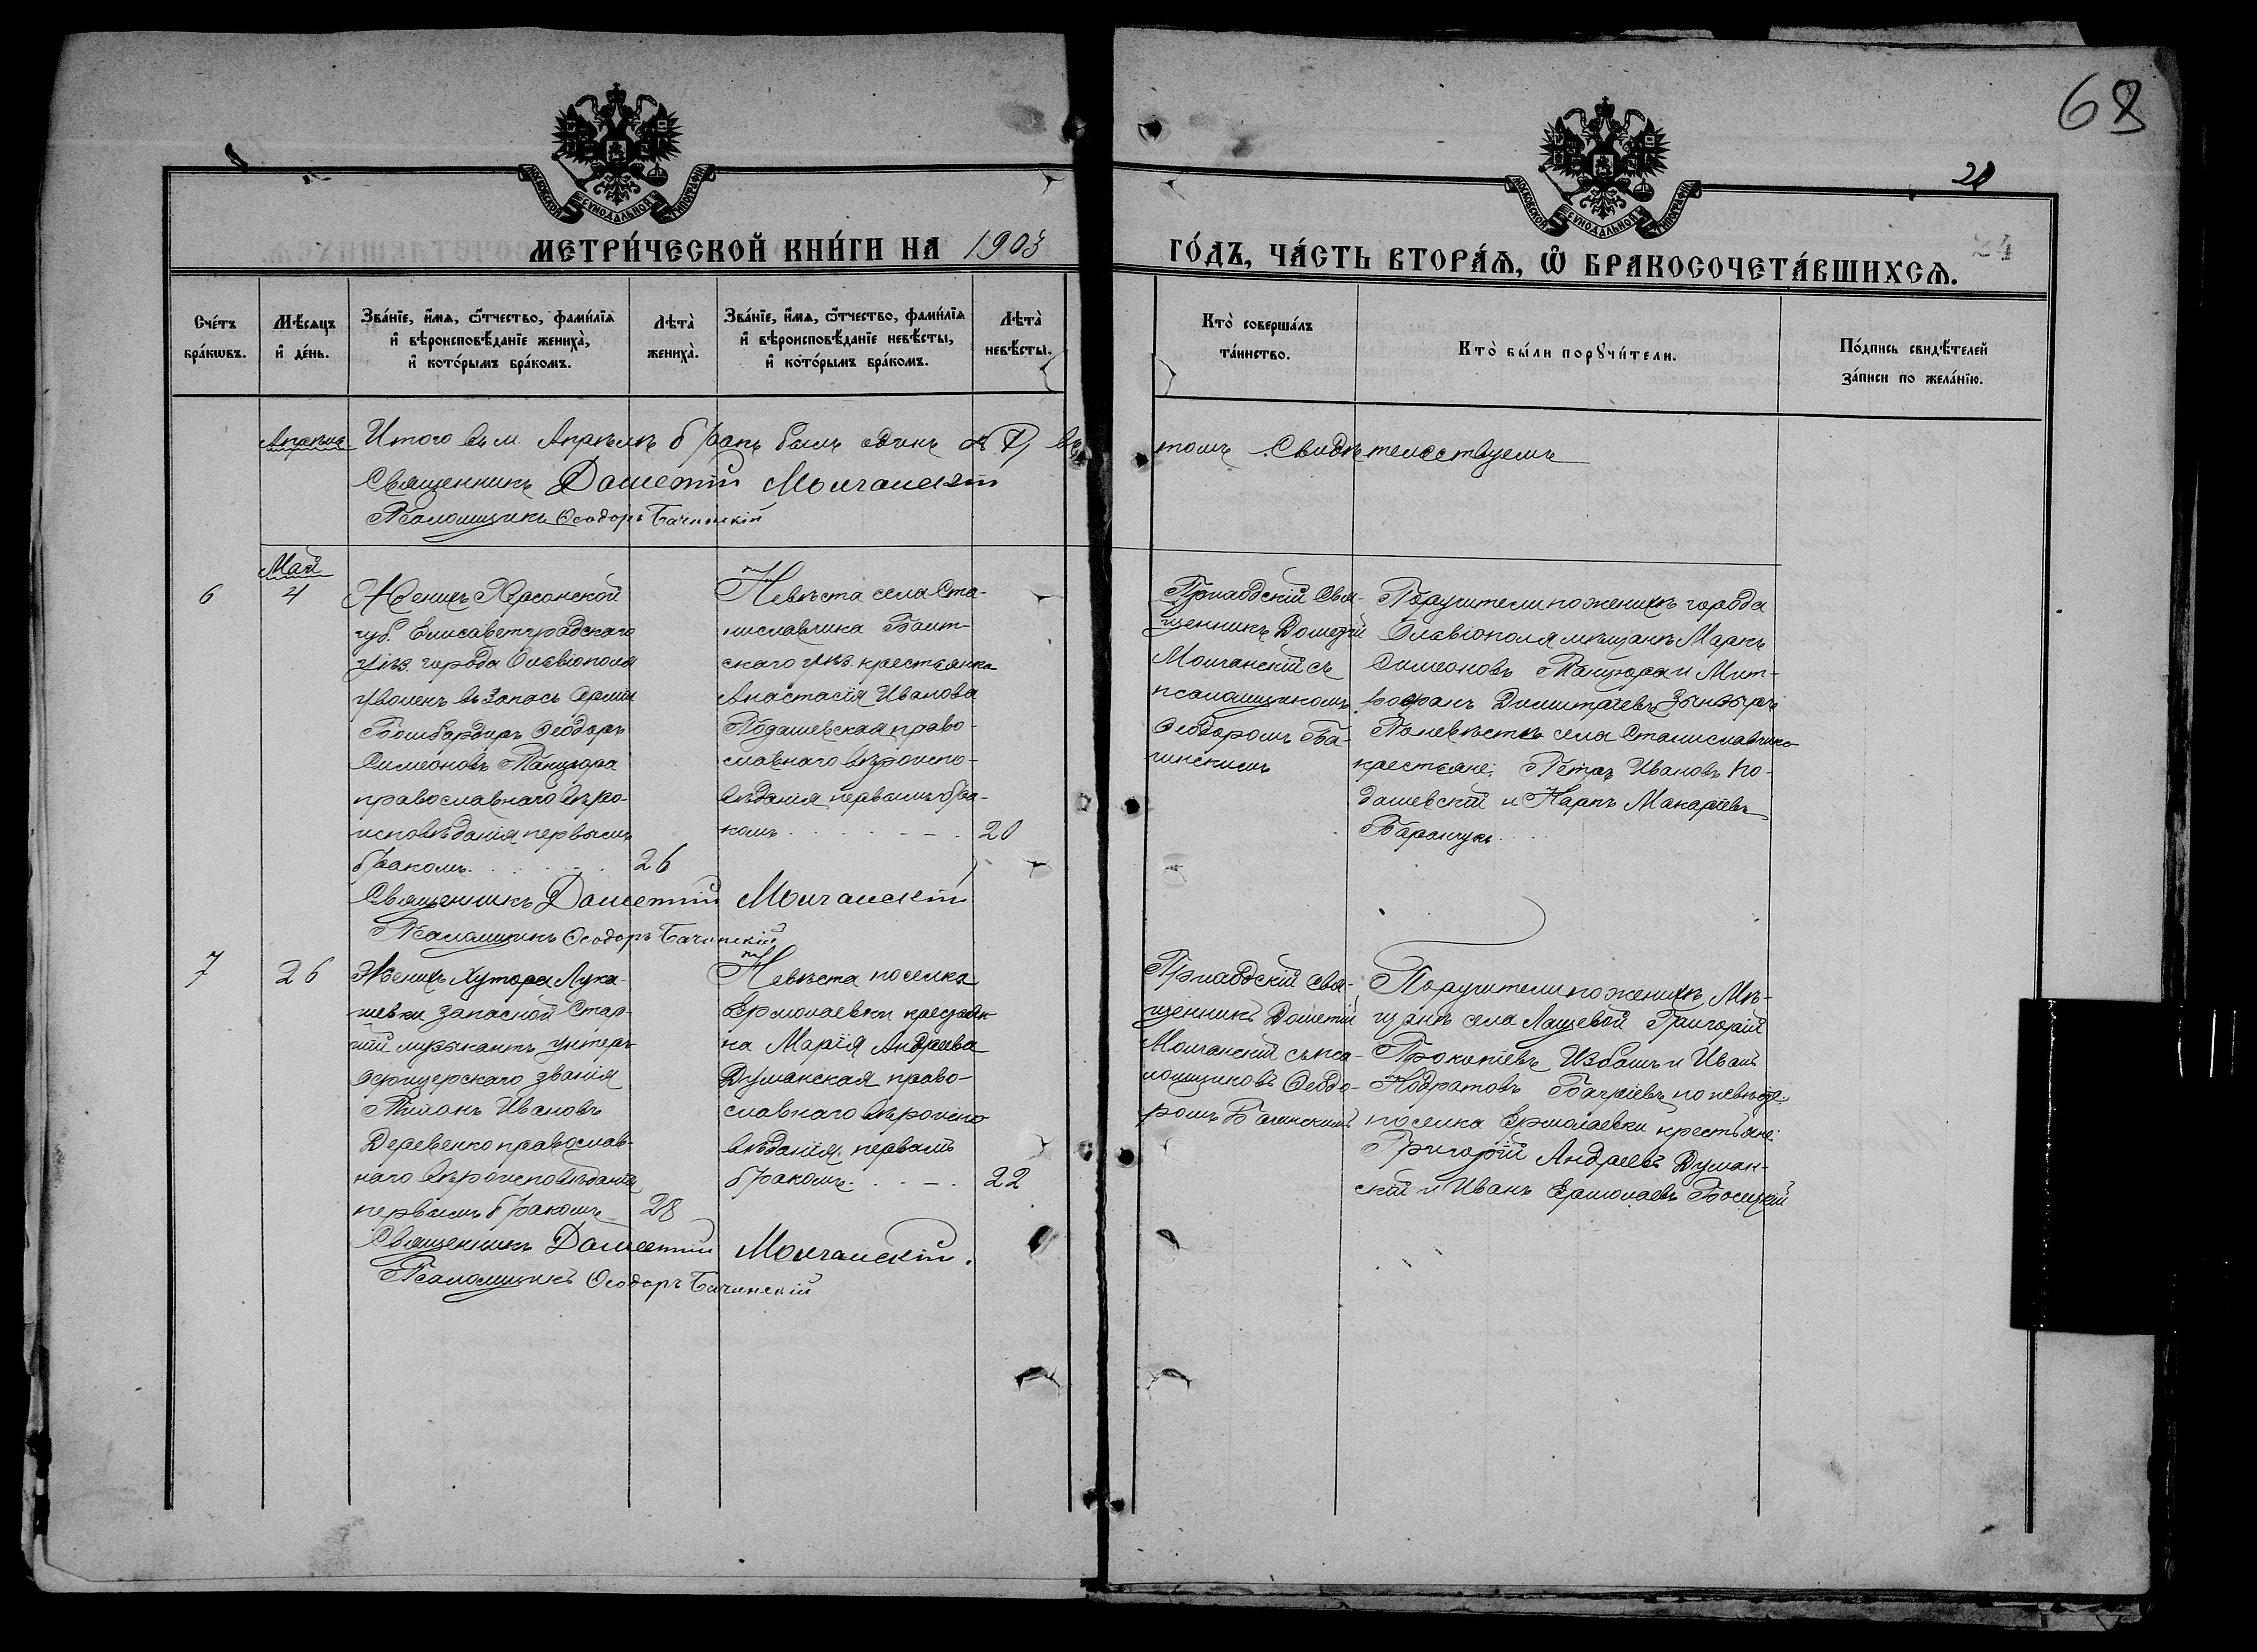 68
28
24
МОСКОВСКОЙ СѴНОДАЛЬНОЙ ТИПОГРАФІИ
МОСКОВСКОЙ СѴНОДАЛЬНОЙ ТИПОГРАФІИ
МЕТРИ́ЧЕСКОЙ КНИ́ГИ НА 1903
ГО́ДЪ, ЧА́СТЬ ВТОРА́Ѧ, Ѡ҆ БРАКОСОЧЕТА́ВШИХСѦ.
Сче́тъ
бра́кѡвъ.
Мѣ́сѧцъ
и҆ де́нь.
Зва́нїе, и҆́мѧ, ѻ҆́тчество, фами́лїѧ
и҆ вѣроисповѣ́данїе жениха̀,
и҆ кото́рымъ бра́комъ.
Лѣта̀
жениха̀.
Зва́нїе, и҆́мѧ, ѻ҆́тчество, фами́лїѧ
и҆ вѣроисповѣ́данїе невѣ́сты,
и҆ кото́рымъ бра́комъ.
Лѣта̀
невѣ́сты.
Кто̀ соверша́лъ
та́инство.
Кто̀ бы́ли порꙋчи́тели.
По́дпись свидѣ́телей
за́писи по жела́нїю.
Апрѣля
Итого въ м. Апрѣлѣ бракъ былъ одинъ въ
томъ Свидѣтельствуемъ
Священникъ Дометій Молчанскій
Псаломщикъ Ѳеодоръ Бачинскій
Май
6
4
Женихъ Херсонской
губ. Елисаветградскаго
уѣз. города Ольвіополя
уволенъ въ Запасъ Арміи
Бомбардиръ Ѳеодоръ
Симеоновъ Танцюра
православнаго вѣро-
исповѣданія первымъ
бракомъ
26
Невѣста села Ста-
ниславчика Балт-
скаго уѣз. крестьянка
Анастасія Иванова
Подашевская право-
славнаго вѣроиспо-
вѣданія первымъ бра-
комъ
20
Приходскій Свя-
щенникъ Дометій
Молчанскій съ
псаломщикомъ
Ѳеодоромъ Ба-
чинскимъ
Поручители по женихѣ города
Ольвіополя мѣщане Маркъ
Симеоновъ Танцюра и Мит-
рофанъ Димитріевъ
По невѣстѣ села Станиславчика
крестьяне: Петръ Ивановъ По-
дашевскій и Карпъ Макаріевъ
Баранчукъ
Священникъ Дометій Молчанскій
Псаломщикъ Ѳеодоръ Бачинскій
7
26
Женихъ Хутора Лука-
шевки запасной Стар-
шій музыкантъ унтеръ
офицерскаго званія
Ивановъ
Деревенко православ-
наго вѣроисповѣданія
первымъ бракомъ
28
Невѣста поселка
Ермолаевки крестьян-
ка Марія Андреева
Думанская право-
славнаго вѣроиспо
вѣданія первымъ
бракомъ
22
Приходскій свя-
щенникъ Дометій
Молчанскій съ пса-
ломщиковъ Ѳеодо-
ромъ Бачинскимъ
Поручители по женихѣ, Мѣ-
щане села Лащевой Григорій
Прокопіевъ Избашъ и Иванъ
Кодратовъ по невѣстѣ:
поселка Ермолаевки крестьяне:
Григорій Андреевъ Думан-
скій и Иванъ Ермолаевъ
Священникъ Дометій Молчанскій.
Псаломщикъ Ѳеодоръ Бачинскій